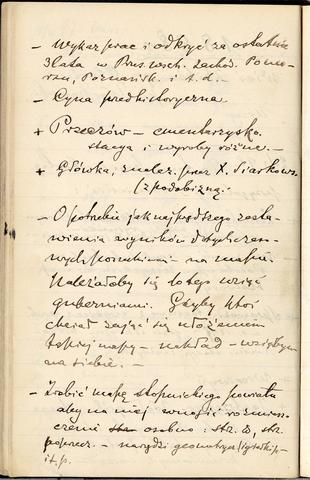 - Wykaz prac i odkryć za ostatnie
3 lata w Prus. wsch. Zachod. Pomo-
rzu, Poznańsk. i t. d.
- Cyna przedhistoryczna.
+ Przeczów - cmentarzysko.
stacya i wyroby różne. -
+ Główka, znalez. przez X. Siarkows.
(z podobizną).
- O potrzebie jak najprędszego zesta-
wienia wyników dotychczas-
wych poszukiwań na mapie
Należałoby się do tego wziąć
guberniami. Gdyby ktoś
chciał zająć się ułożeniem
takiej mapy - nakład - wziąłbym
na siebie. -
- Zrobić mapę stopnickiego powiatu
aby na niej wnosić rozmiesz-
czenie osobno: str.
- narzędzi geometrycz.
i t. p.